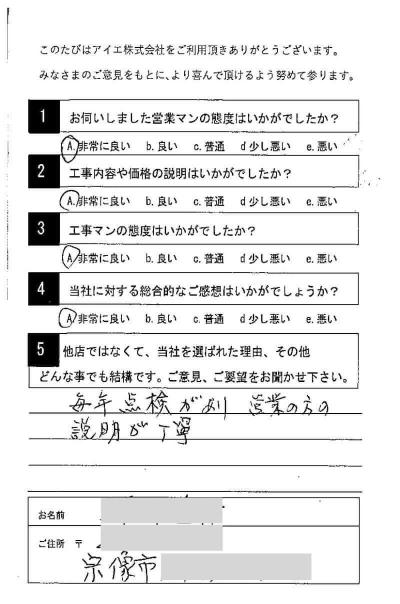 このたびはアイエ株式会社をご利用頂きありがとうございます。
みなさまのご意見をもとに、より喜んで頂けるよう努めて参ります。
1 お伺いしました営業マンの態度はいかがでしたか？
A.非常に良い b.良い c.普通 d少し悪い e.悪い
2 工事内容や価格の説明はいかがでしたか？
A.非常に良い b.良い c.普通 d少し悪い e.悪い
3 工事マンの態度はいかがでしたか？
A.非常に良い b.良い c.普通 d少し悪い e.悪い
4 当社に対する総合的なご感想はいかがでしょうか？
A.非常に良い b.良い c.普通 d少し悪い e.悪い
5 他店ではなくて、当社を選ばれた理由、その他
どんな事でも結構です。ご意見、ご要望をお聞かせ下さい。
毎年点検があり 営業の方の
説明が丁寧
お名前
ご住所 〒
宗像市